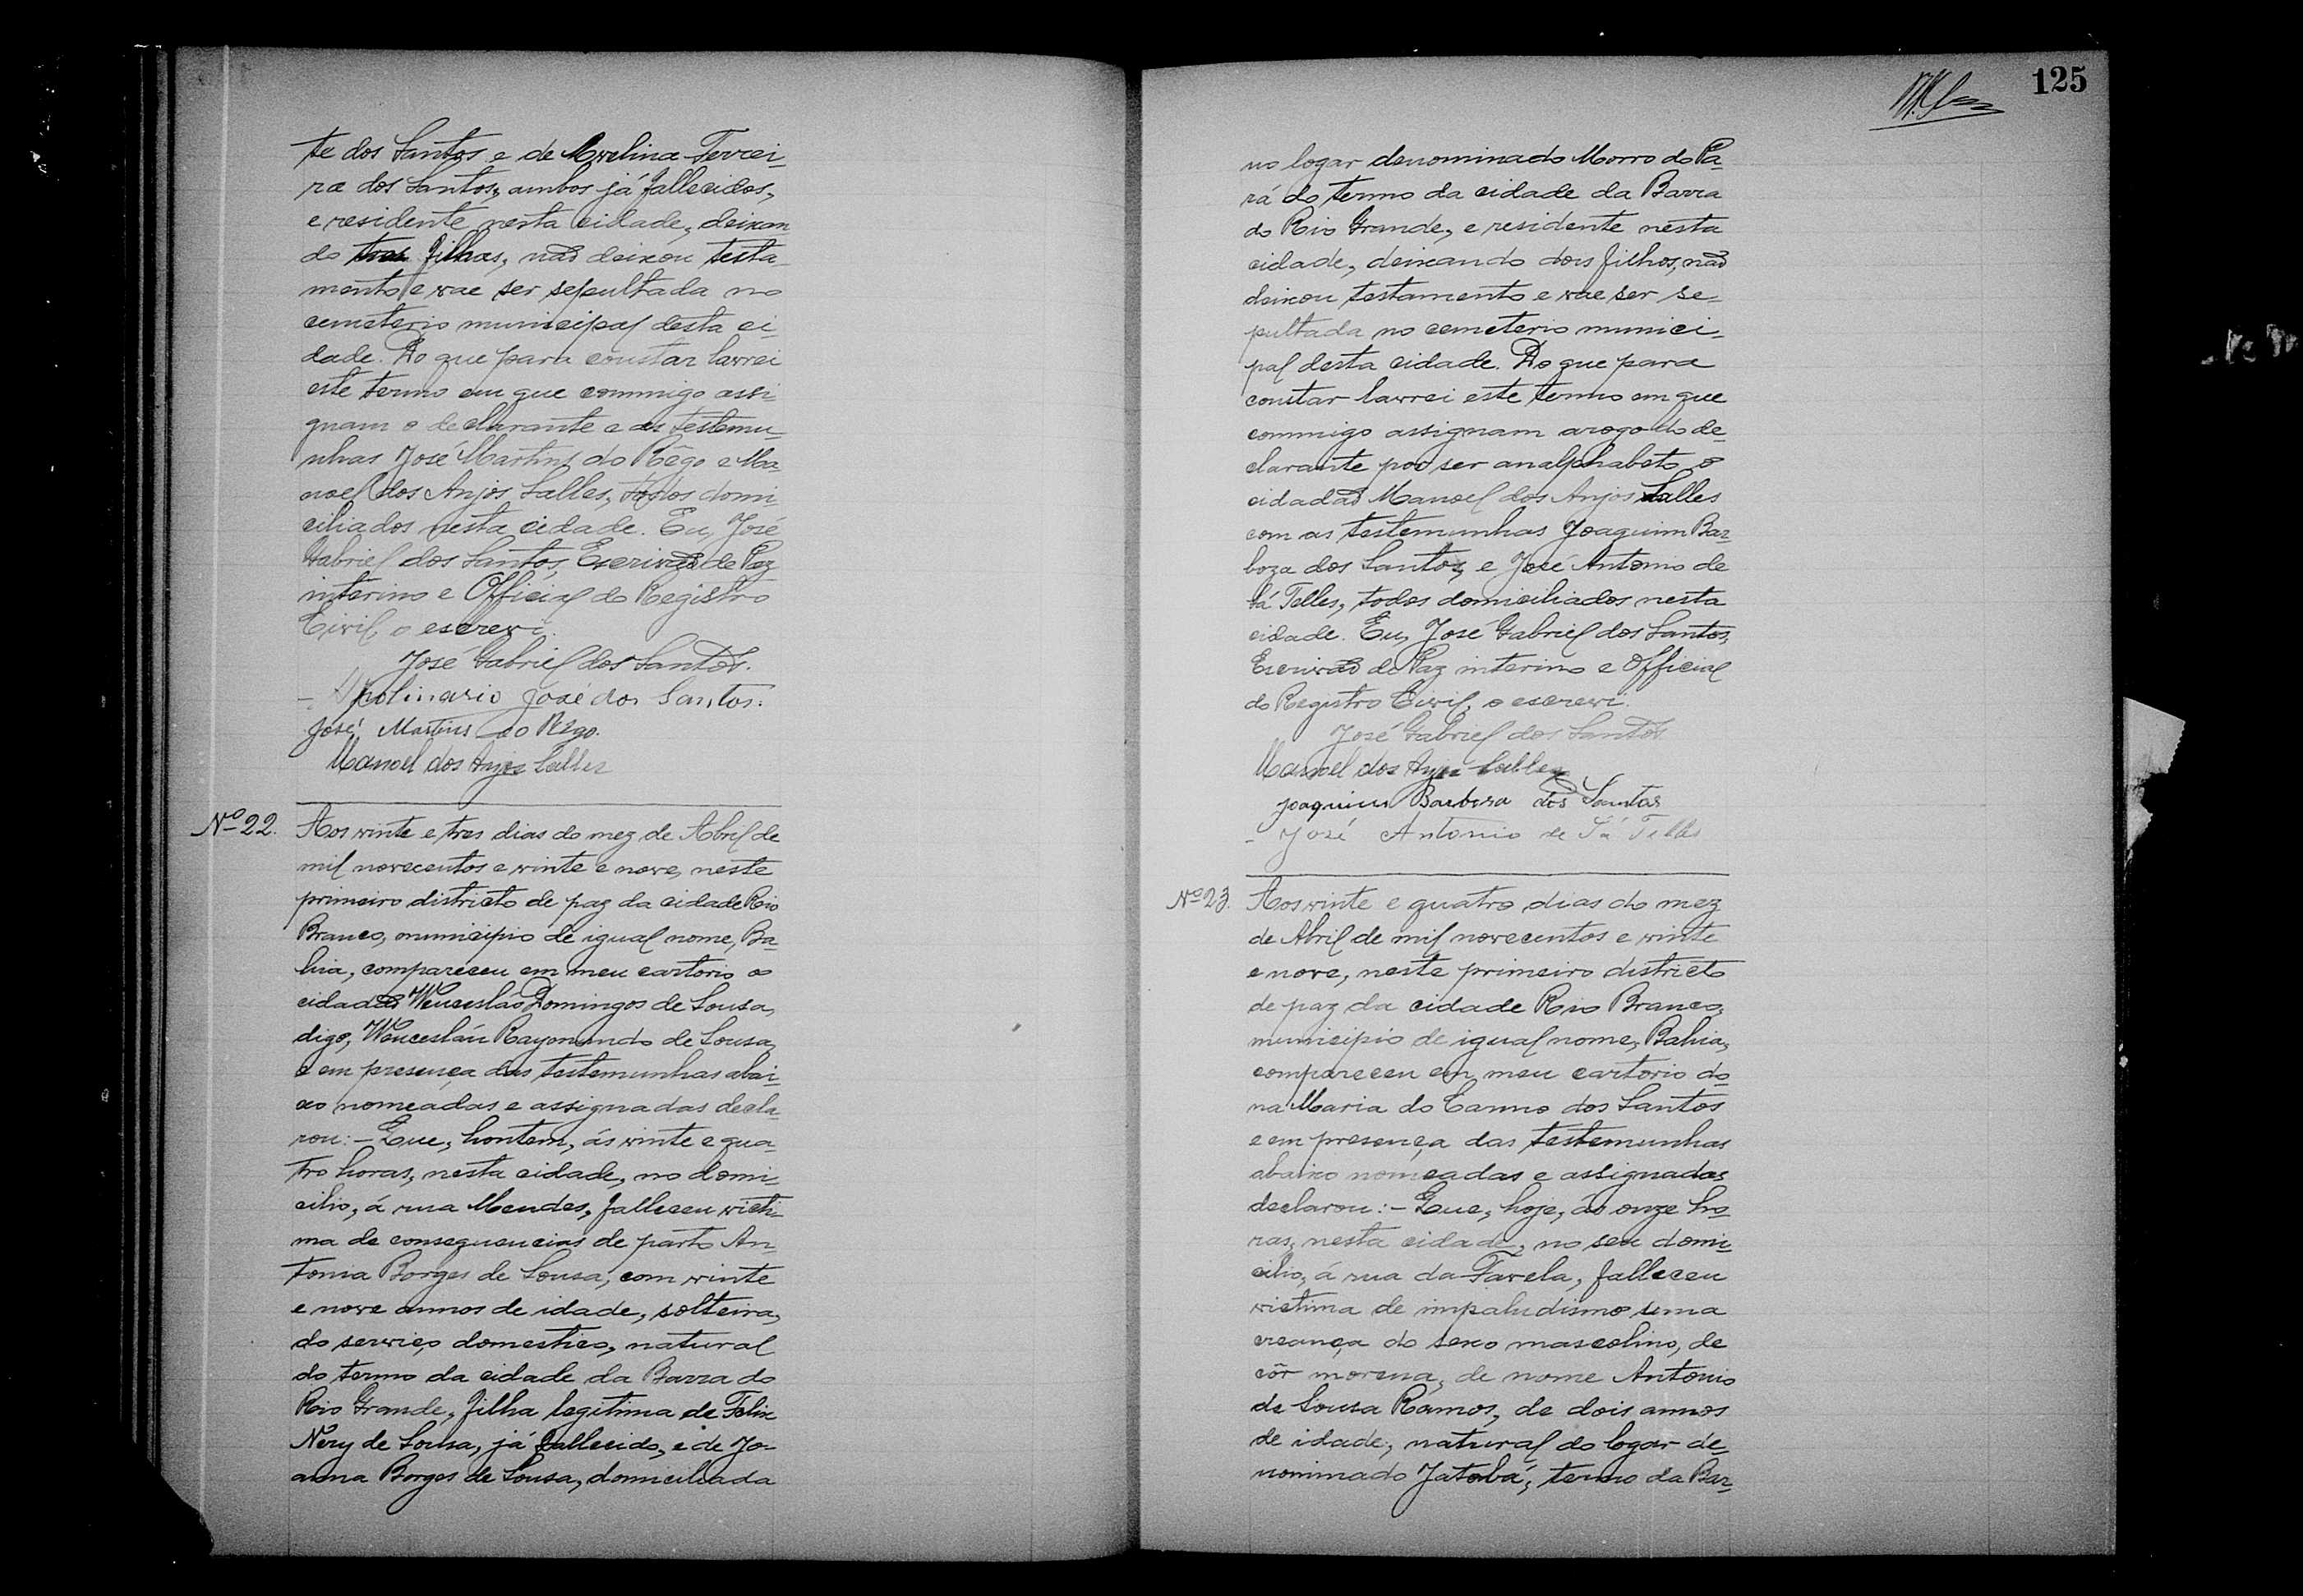 te dos Santos e de Avelina Ferrei-
ra dos Santos, ambos já fallecidos,
e residente nesta cidade, deixan
do tres filhas, não deixou testa-
mento e vae ser sepultada no
cemeterio municipal desta ci-
dade. Do que para constar lavrei
este termo em que commigo assi-
gnam o declarante e as testemu-
nhas José Martins do Rêgo e Ma-
noel dos Anjos Salles, todos domi-
ciliados nesta cidade. Eu, José
Gabriel dos Santos, Escrivão de Paz
interino e Official do Registro
Civil, o escrevi.
José Gabriel dos Santos.
- Apolinario José dos Santos.
José Martins do Rêgo.
Manoel dos Anjos Salles
Nº 22. Aos vinte e tres dias do mez de Abril de
mil novecentos e vinte e nove, neste
primeiro districto de paz da cidade Rio
Branco, municipio de igual nome, Ba-
hia, compareceu em meu cartorio o
cidadão Wenceslão Domingos de Sousa,
digo, Wencesláu Raymundo de Sousa,
e em presença das testemunhas abai-
xo nomeadas e assignadas decla-
rou:- Que, hontem, ás vinte e qua-
tro horas, nesta cidade, no domi-
cilio, á rua Mendes, falleceu victi-
ma de consequencias de parto An-
tonia Borges de Sousa, com vinte
e nove annos de idade, solteira,
do serviço domestico, natural
do termo da cidade da Barra do
Rio Grande, filha legitima de Felix
Nery de Sousa, já fallecido, e de Jo-
anna Borges de Sousa, domiciliada
125
no logar denominado Morro do Pa-
rá do termo da cidade da Barra
do Rio Grande, e residente nesta
cidade, deixando dois filhos, não
deixou testamento e vae ser se-
pultada no cemeterio munici-
pal desta cidade. Do que para
constar lavrei este termo em que
commigo assignam arogo do de-
clarante por ser analphabeto o
cidadão Manoel dos Anjos Salles
com as testemunhas Joaquim Bar-
boza dos Santos, e José Antonio de
Sá Telles, todos domiciliados nesta
cidade. Eu, José Gabriel dos Santos,
Escrivão de Paz interino e Official
do Registro Civil, o escrevi.
José Gabriel dos Santos
Manoel dos Anjos Salles
Joaquim Barbosa dos Santos
- José Antonio de Sá Telles
Nº 23. Aos vinte e quatro dias do mez
de Abril de mil novecentos e vinte
e nove, neste primeiro districto
de paz da cidade Rio Branco,
municipio de igual nome, Bahia,
compareceu em meu cartorio do-
na Maria do Carmo dos Santos
e em presença das testemunhas
abaixo nomeadas e assignadas
declarou:- Que, hoje, ás onze ho-
ras, nesta cidade, no seu domi-
cilio, á rua da Favela, falleceu
victima de impaludismo uma
creança do sexo mascolino, de
côr morena, de nome Antonio
de Sousa Ramos, de dois annos
de idade, natural do logar de-
nominado Jatobá, termo da Bar-